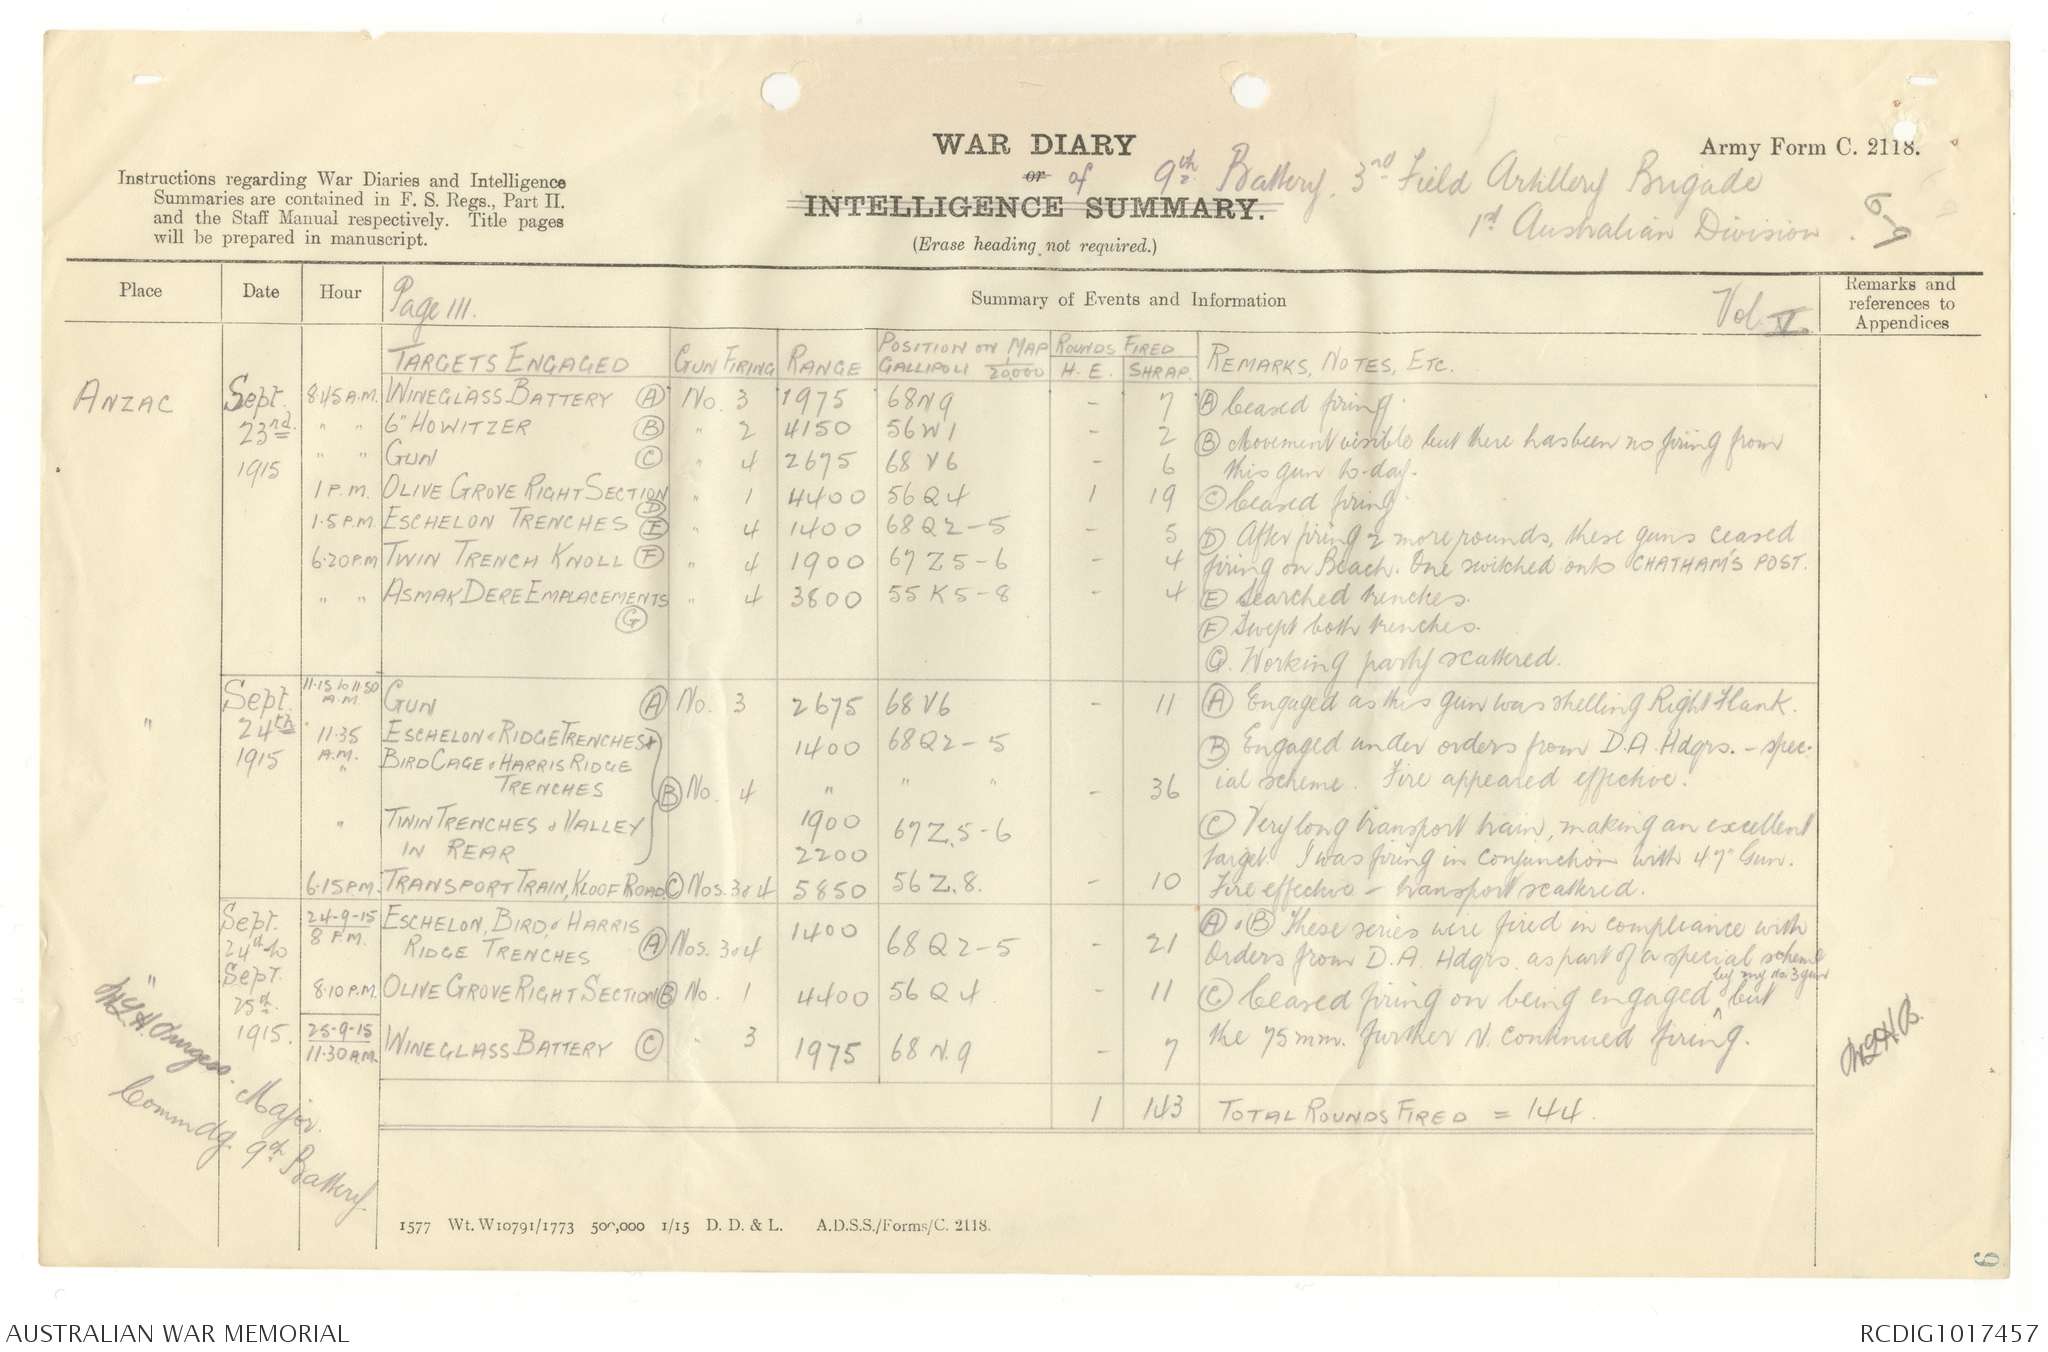 WAR DIARY
Army Form C. 2118.
or of 9th Battery. 3rd Field Artillery Brigade
INTELLIGENCE SUMMARY.
1st Australian Division.
(Erase heading not required.)
Instructions regarding War Diaries and Intelligence
Summaries are contained in F. S. Regs., Part II.
and the Staff Manual respectively. Title pages
will be prepared in manuscript.
Place Date Hour Page III. Summary of Events and Information Vol. V. Remarks and
references to
Appendices
TARGETS ENGAGED GUN FIRING RANGE POSITION ON MAP GALLIPOLI 1/20,000 ROUNDS FIRED H.E. SHRAP. REMARKS, NOTES, ETC.
ANZAC Sept. 23rd 1915 8.45 A.M. WINEGLASS BATTERY (A) No. 3 1975 68 N 9 - 7 (A) Ceased firing.
" " 6" HOWITZER (B) " 2 4150 56 W 1 - 2 (B) Movement visible but there has been no firing from
this gun to-day.
" " GUN (C) " 4 2675 68 V 6 - 6
1 P.M. OLIVE GROVE RIGHT SECTION (D) " 1 4400 56 Q 4 1 19 (C) Ceased firing.
1.5 P.M. ESCHELON TRENCHES (E) " 4 1400 68 Q 2-5 - 5 (D) After firing 2 more rounds, these guns ceased
6.20 P.M. TWIN TRENCH KNOLL (F) " 4 1900 67 Z 5-6 - 4 firing on Beach. One switched onto CHATHAM'S POST.
" " ASMAK DERE EMPLACEMENTS (G) " 4 3800 55 K 5-8 - 4 (E) Searched trenches.
(F) Swept both trenches.
(G). Working party scattered.
" Sept. 24th 1915 11.15 to 11.50 A.M. GUN (A) No. 3 2675 68 V 6 - 11 (A) Engaged as this gun was shelling Right Flank.
11.35 A.M. ESCHELON & RIDGE TRENCHES & 1400 68 Q 2-5 (B) Engaged under orders from D.A. Hdqrs. - spec-
" BIRD CAGE & HARRIS RIDGE
TRENCHES (B) No. 4 " " " - 36 ial scheme. Fire appeared effective.
" TWIN TRENCHES & VALLEY 1900 67 Z.5-6 (C) Very long transport train, making an excellent
IN REAR 2200 target. I was firing in conjunction with 4.7" Gun.
6.15 P.M. TRANSPORT TRAIN, KLOOF ROAD. (C) Nos. 3 & 4 5850 56 Z.8. - 10 Fire effective - transport scattered.
" Sept. 24th to 24-9-15 8 P.M. ESCHELON, BIRD, & HARRIS 1400 (A) & (B) These series were fired in compliance with
RIDGE TRENCHES (A) Nos. 3 & 4 68 Q 2-5 - 21 Orders from D.A. Hdqrs. as part of a special scheme
by my No. 3 gun
Sept. 25th 1915. 8.10 P.M. OLIVE GROVE RIGHT SECTION (B) No. 1 4400 56 Q 4. - 11 (C) Ceased firing on being engaged, but
25-9-15 11.30 A.M. WINEGLASS BATTERY (C) " 3 1975 68 N.9 - 7 the 75 mm. further N. continued firing.
1 143 TOTAL ROUNDS FIRED = 144.
W.L.H. Burgess. Major.
Commdg. 9th Battery.
W.L.H.B.
1577 Wt. W10791/1773 500,000 1/15 D. D. & L. A.D.S.S./Forms/C. 2118.
AUSTRALIAN WAR MEMORIAL
RCDIG1017457